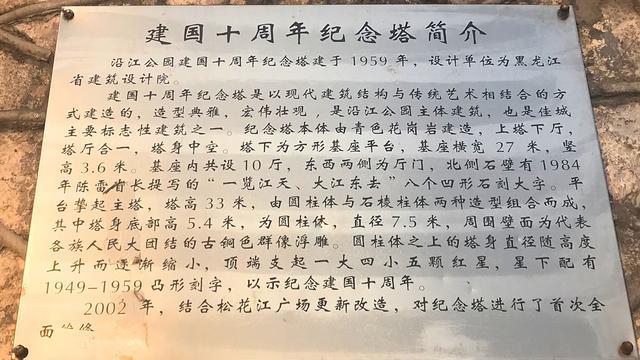 建国十周年纪念塔简介
沿江公园建国十周年纪念塔建于1959年，设计单位为黑龙江
省建筑设计院。
建国十周年纪念塔是以现代建筑结构与传统艺术相结合的方
式建造的，造型典雅，宏伟壮观，是沿江公园主体建筑，也是佳城
主要标志性建筑之一。纪念塔本体由青色花岗岩建造，上塔下厅，
塔厅合一，塔身中空。塔下为方形基座平台，基座横宽27米，竖
高3.6米。基座内共设10厅，东西两侧为厅门，北侧石壁有1984
年陈雷省长提写的“一览江天、大江东去”八个凹形石刻大字。平
台擎起主塔，塔高33米，由圆柱体与石棱柱体两种造型组合而成，
其中塔身底部高5.4米，为圆柱体，直径7.5米，周围壁面为代表
各族人民大团结的古铜色群像浮雕。圆柱体之上的塔身直径随高度
上升而逐渐缩小，顶端支起一大四小五颗红星，星下配有
1949-1959凸形刻字，以示纪念建国十周年。
2002年，结合松花江广场更新改造，对纪念塔进行了首次全
面